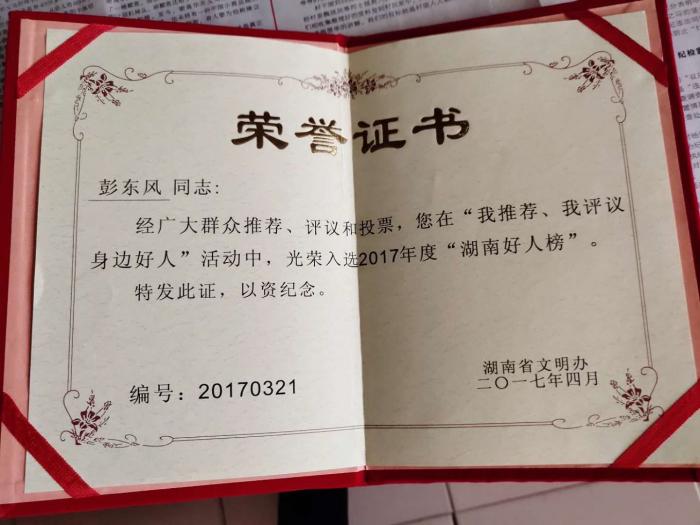 荣誉证书
彭东风 同志:
经广大群众推荐、评议和投票，您在“我推荐、我评议
身边好人”活动中，光荣入选2017年度“湖南好人榜”。
特发此证，以资纪念。
湖南省文明办
二〇一七年四月
编号：20170321
纪检